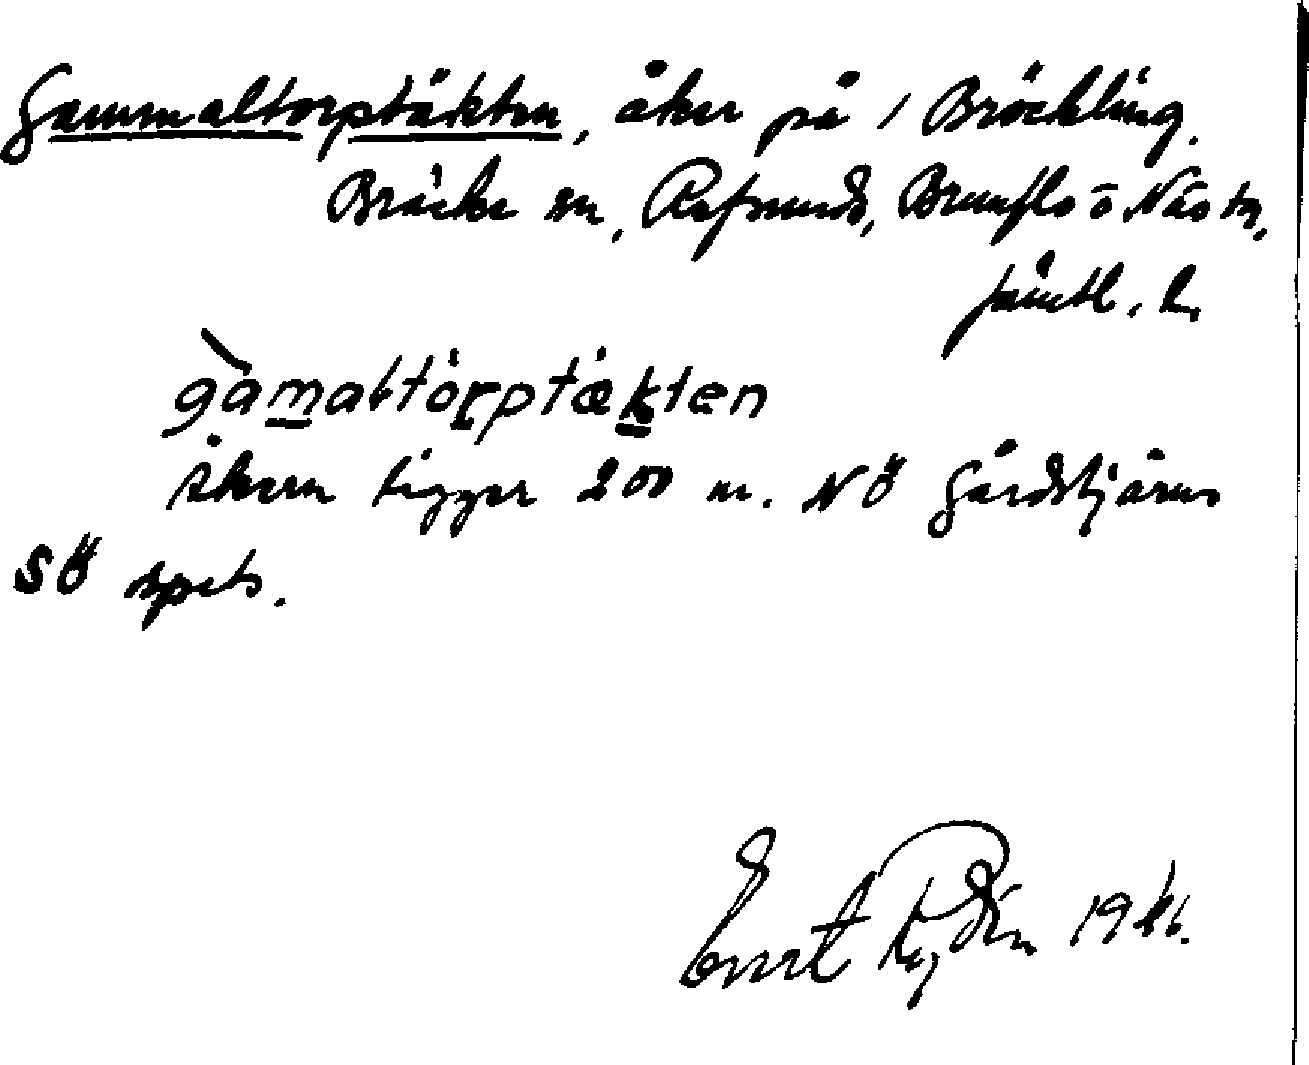 Gammaltorptäkten, åker på 1 Bröckling.
Bräcke sn, Refsunds, Brunflo o Näs tg,
Jämtl. l.
gàmaltòrptæktən
Åkern ligger 200 m. NÖ Gårdstjärns
SÖ spets.
Ernst Rydén 1946.